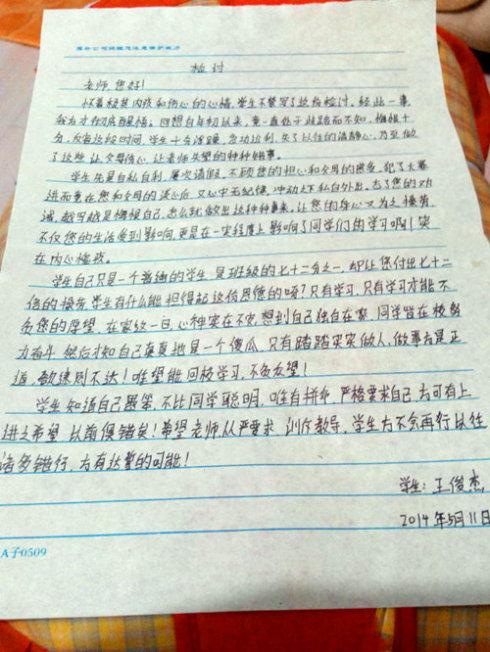 检讨
老师,您好!
怀着极其内疚和伤心的心情,学生不禁写了这份检讨。经此一事,
我方才彻底醒悟。回想自年初以来,竟一直处于歧路而不知,惭愧十
分,反省这段时间,学生十分浮躁,急功近利,失了以往的清静心,乃至做
了这些让父母伤心,让老师失望的种种错事。
学生先是自私自利,屡次请假,不顾您的担心和父母的困乏,犯了大事
进而竟在您和父母的谈心后,又心中无纪律,冲动下私自外出,忘了您的劝
诫,越写越是惭愧自己,怎么就做出这种种事来。让您的身心又为之操劳,
不仅您的生活受到影响,更是在一定程度上影响了同学们的学习啊!实
在内心慊我。
学生自己只是一个普通的学生,是班级的七十二分之一,却让您付出七十二
倍的操劳,学生有什么能担得起这份恩德的啥?只有学习,只有学习才能不
负您的厚望,在家数一日,心神实在不安,想到自己独自在家,同学皆在校努
力奋斗,然后才知自己真真地是一个傻瓜,只有踏踏实实做人,做事方是正
道,欲速则不达!唯望能回校学习,不负友望!
学生知道自己愚笨,不比同学聪明,唯有拼命,严格要求自己,方可有上
进之希望,以前俱错矣!希望老师从严要求,训斥教导,学生方不会再行以往
诸多错行,方有达誉的可能!
学生:王俊杰,
2014年5月11日
A子0509